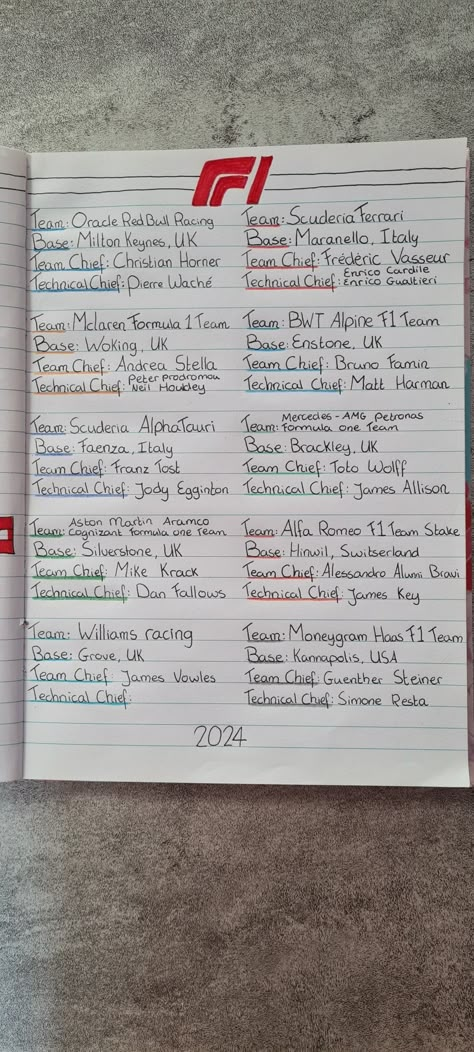 F1
Team: Oracle Red Bull Racing
Base: Milton Keynes, UK
Team Chief: Christian Horner
Technical Chief: Pierre Waché
Team: Scuderia Ferrari
Base: Maranello, Italy
Team Chief: Frédéric Vasseur
Technical Chief: Enrico Cardile
Enrico Gualtieri
Team: Mclaren Formula 1 Team
Base: Woking, UK
Team Chief: Andrea Stella
Technical Chief: Peter Prodromou
Neil Houldey
Team: BWT Alpine F1 Team
Base: Enstone, UK
Team Chief: Bruno Famin
Technical Chief: Matt Harman
Team: Scuderia AlphaTauri
Base: Faenza, Italy
Team Chief: Franz Tost
Technical Chief: Jody Egginton
Team: Mercedes-AMG Petronas
Formula one Team
Base: Brackley, UK
Team Chief: Toto Wolff
Technical Chief: James Allison
Team: Aston Martin Aramco
Cognizant Formula one Team
Base: Silverstone, UK
Team Chief: Mike Krack
Technical Chief: Dan Fallows
Team: Alfa Romeo F1 Team Stake
Base: Hinwil, Switserland
Team Chief: Alessandro Alunni Bravi
Technical Chief: James Key
Team: Williams racing
Base: Grove, UK
Team Chief: James Vowles
Technical Chief:
Team: Moneygram Haas F1 Team
Base: Kannapolis, USA
Team Chief: Guenther Steiner
Technical Chief: Simone Resta
2024